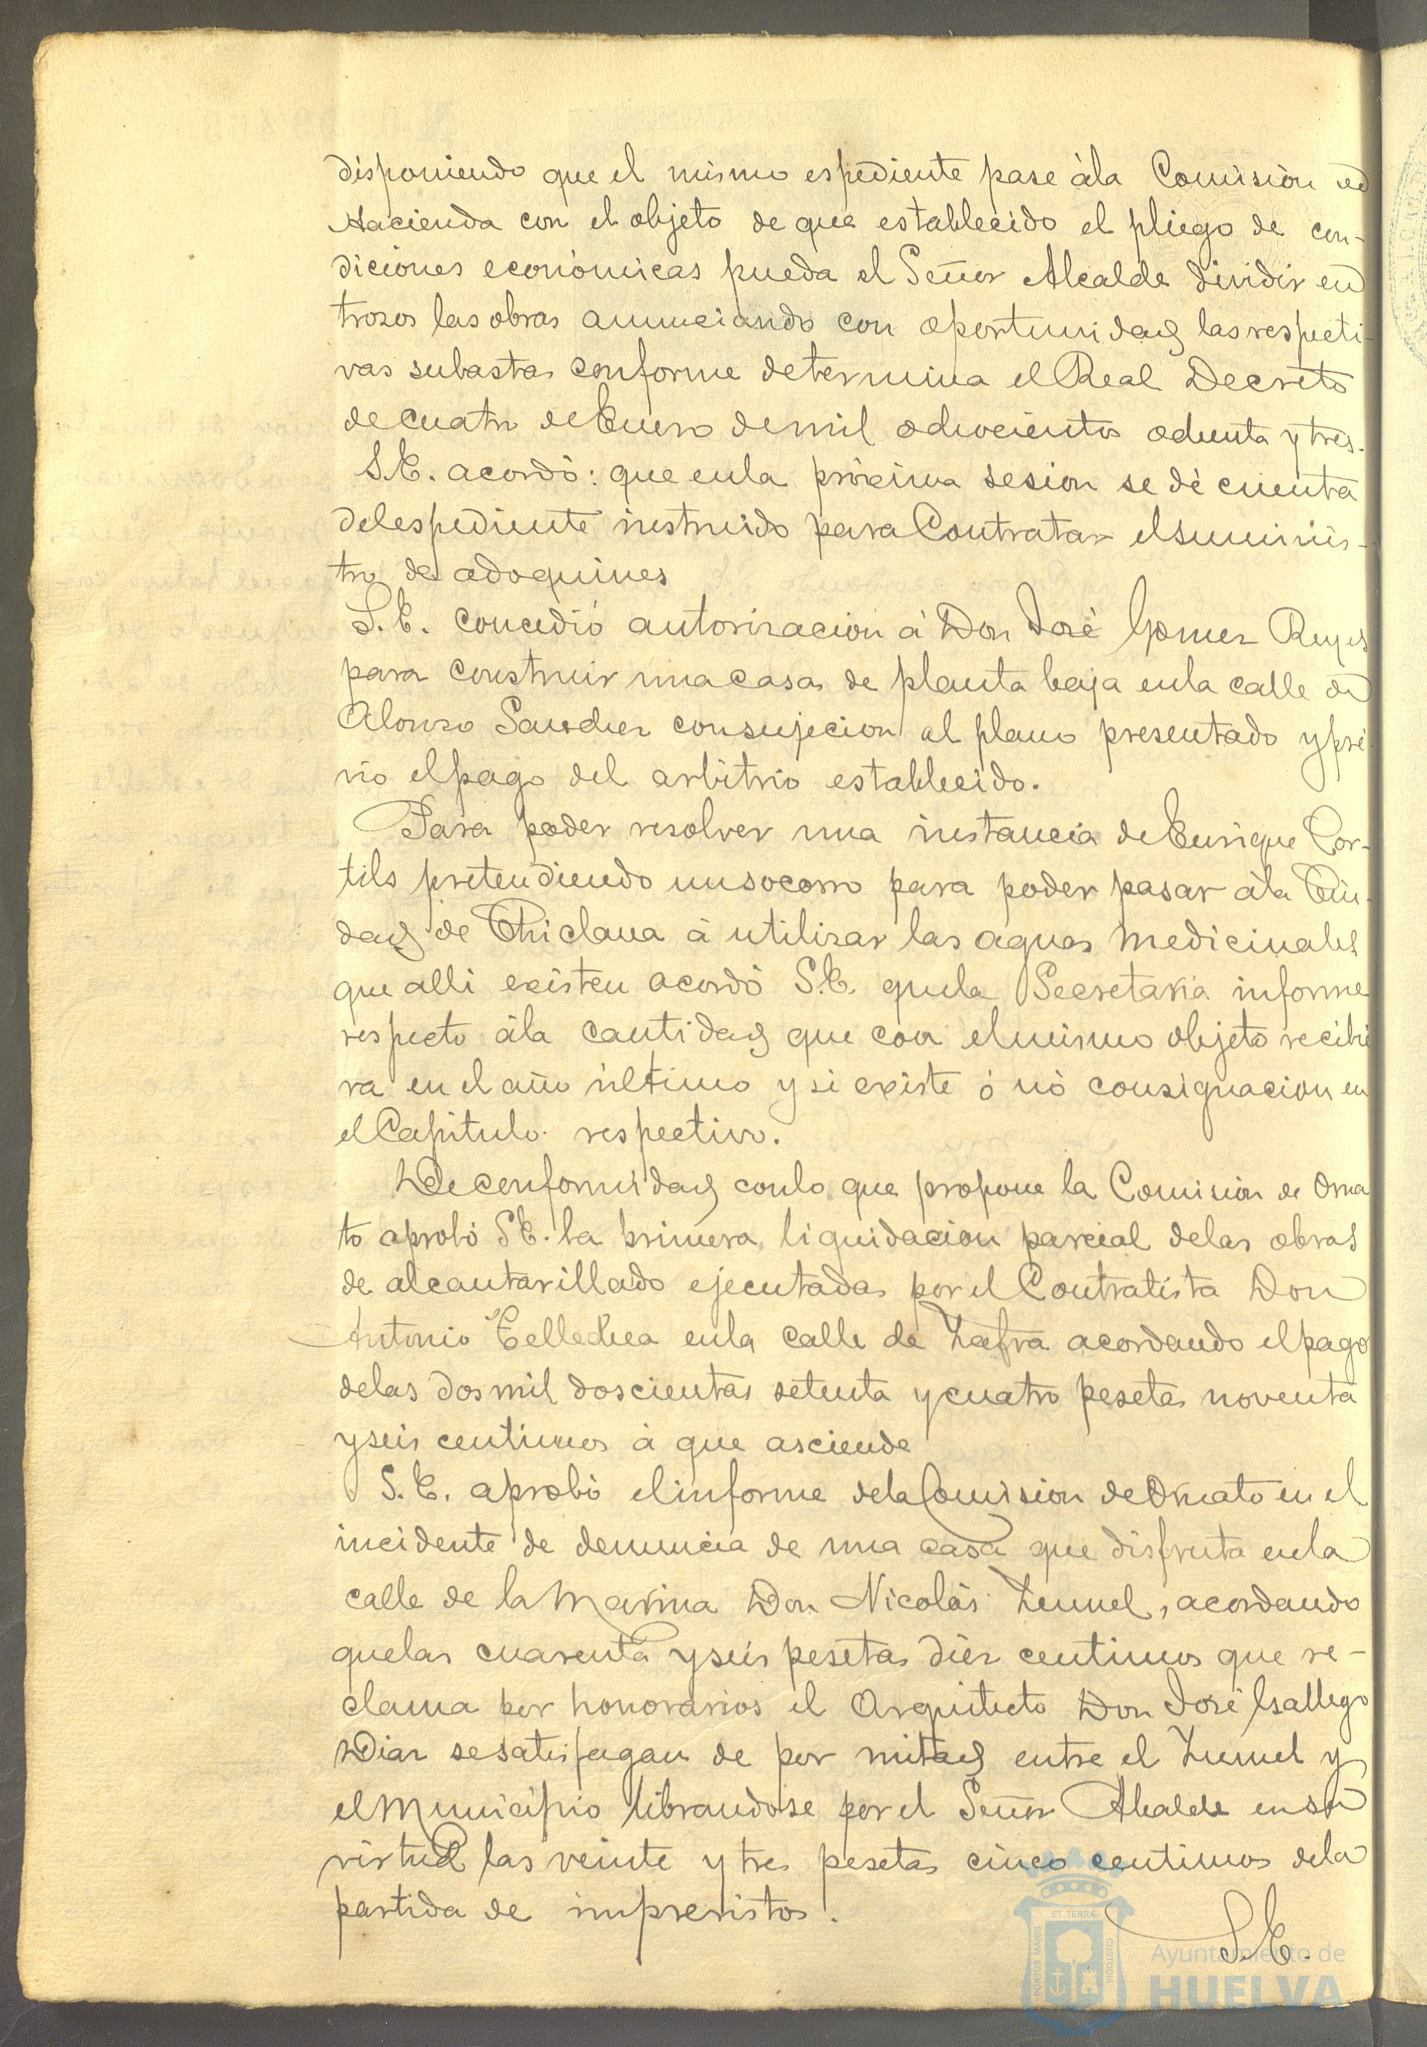 disponiendo que el mismo espediente pase á la Comisión de
Hacienda con el objeto de que establecido el pliego de con-
diciones económicas pueda el Señor Alcalde dividir en
trozos las obras anunciando con oportunidad las respecti-
vas subastas conforme determina el Real Decreto
de cuatro de Enero de mil ochocientos ochenta y tres.
S.E. acordó: que en la próxima sesion se dé cuenta
del espediente instruido para Contratar el suminis-
tro de adoquines
S.E. concedió autorizacion á Don José Gomez Reyes
para construir una casa de planta baja en la calle de
Alonso Sanchez con sujecion al plano presentado y pré-
vio el pago del arbitrio establecido.
Para poder resolver una instancia de Enrique Cor-
tils pretendiendo un socorro para poder pasar á la Ciu-
dad de Chiclana á utilizar las aguas medicinales
que alli existen acordó S.E. que la Secretaria informe
respecto á la cantidad que con el mismo objeto recibie
ra en el año último y si existe ó nó consignacion en
el Capítulo respectivo.
De conformidad con lo que propone la Comisión de Orna
to aprobó S.E. la primera liquidacion parcial de las obras
de alcantarillado ejecutadas por el Contratista Don
Antonio Tellechea en la calle de Zafra acordando el pago
de las dos mil doscientas setenta y cuatro pesetas noventa
y seis centimos á que asciende
S.E. aprobó el informe de la Comision de Ornato en el
incidente de denuncia de una casa que disfruta en la
calle de la Marina Don Nicolás Zunel, acordando
que las cuarenta y seis pesetas diez centimos que re-
clama por honorarios el Arquitecto Don José Gallego
Diaz se satisfagan de por mitad entre el Zunel y
el Municipio librandose por el Señor Alcalde en su
virtud las veinte y tres pesetas cinco centimos de la
partida de imprevistos.
S.E.
PORTUS MARIS ET TERRÆ CUSTODIA
Ayuntamiento de
HUELVA